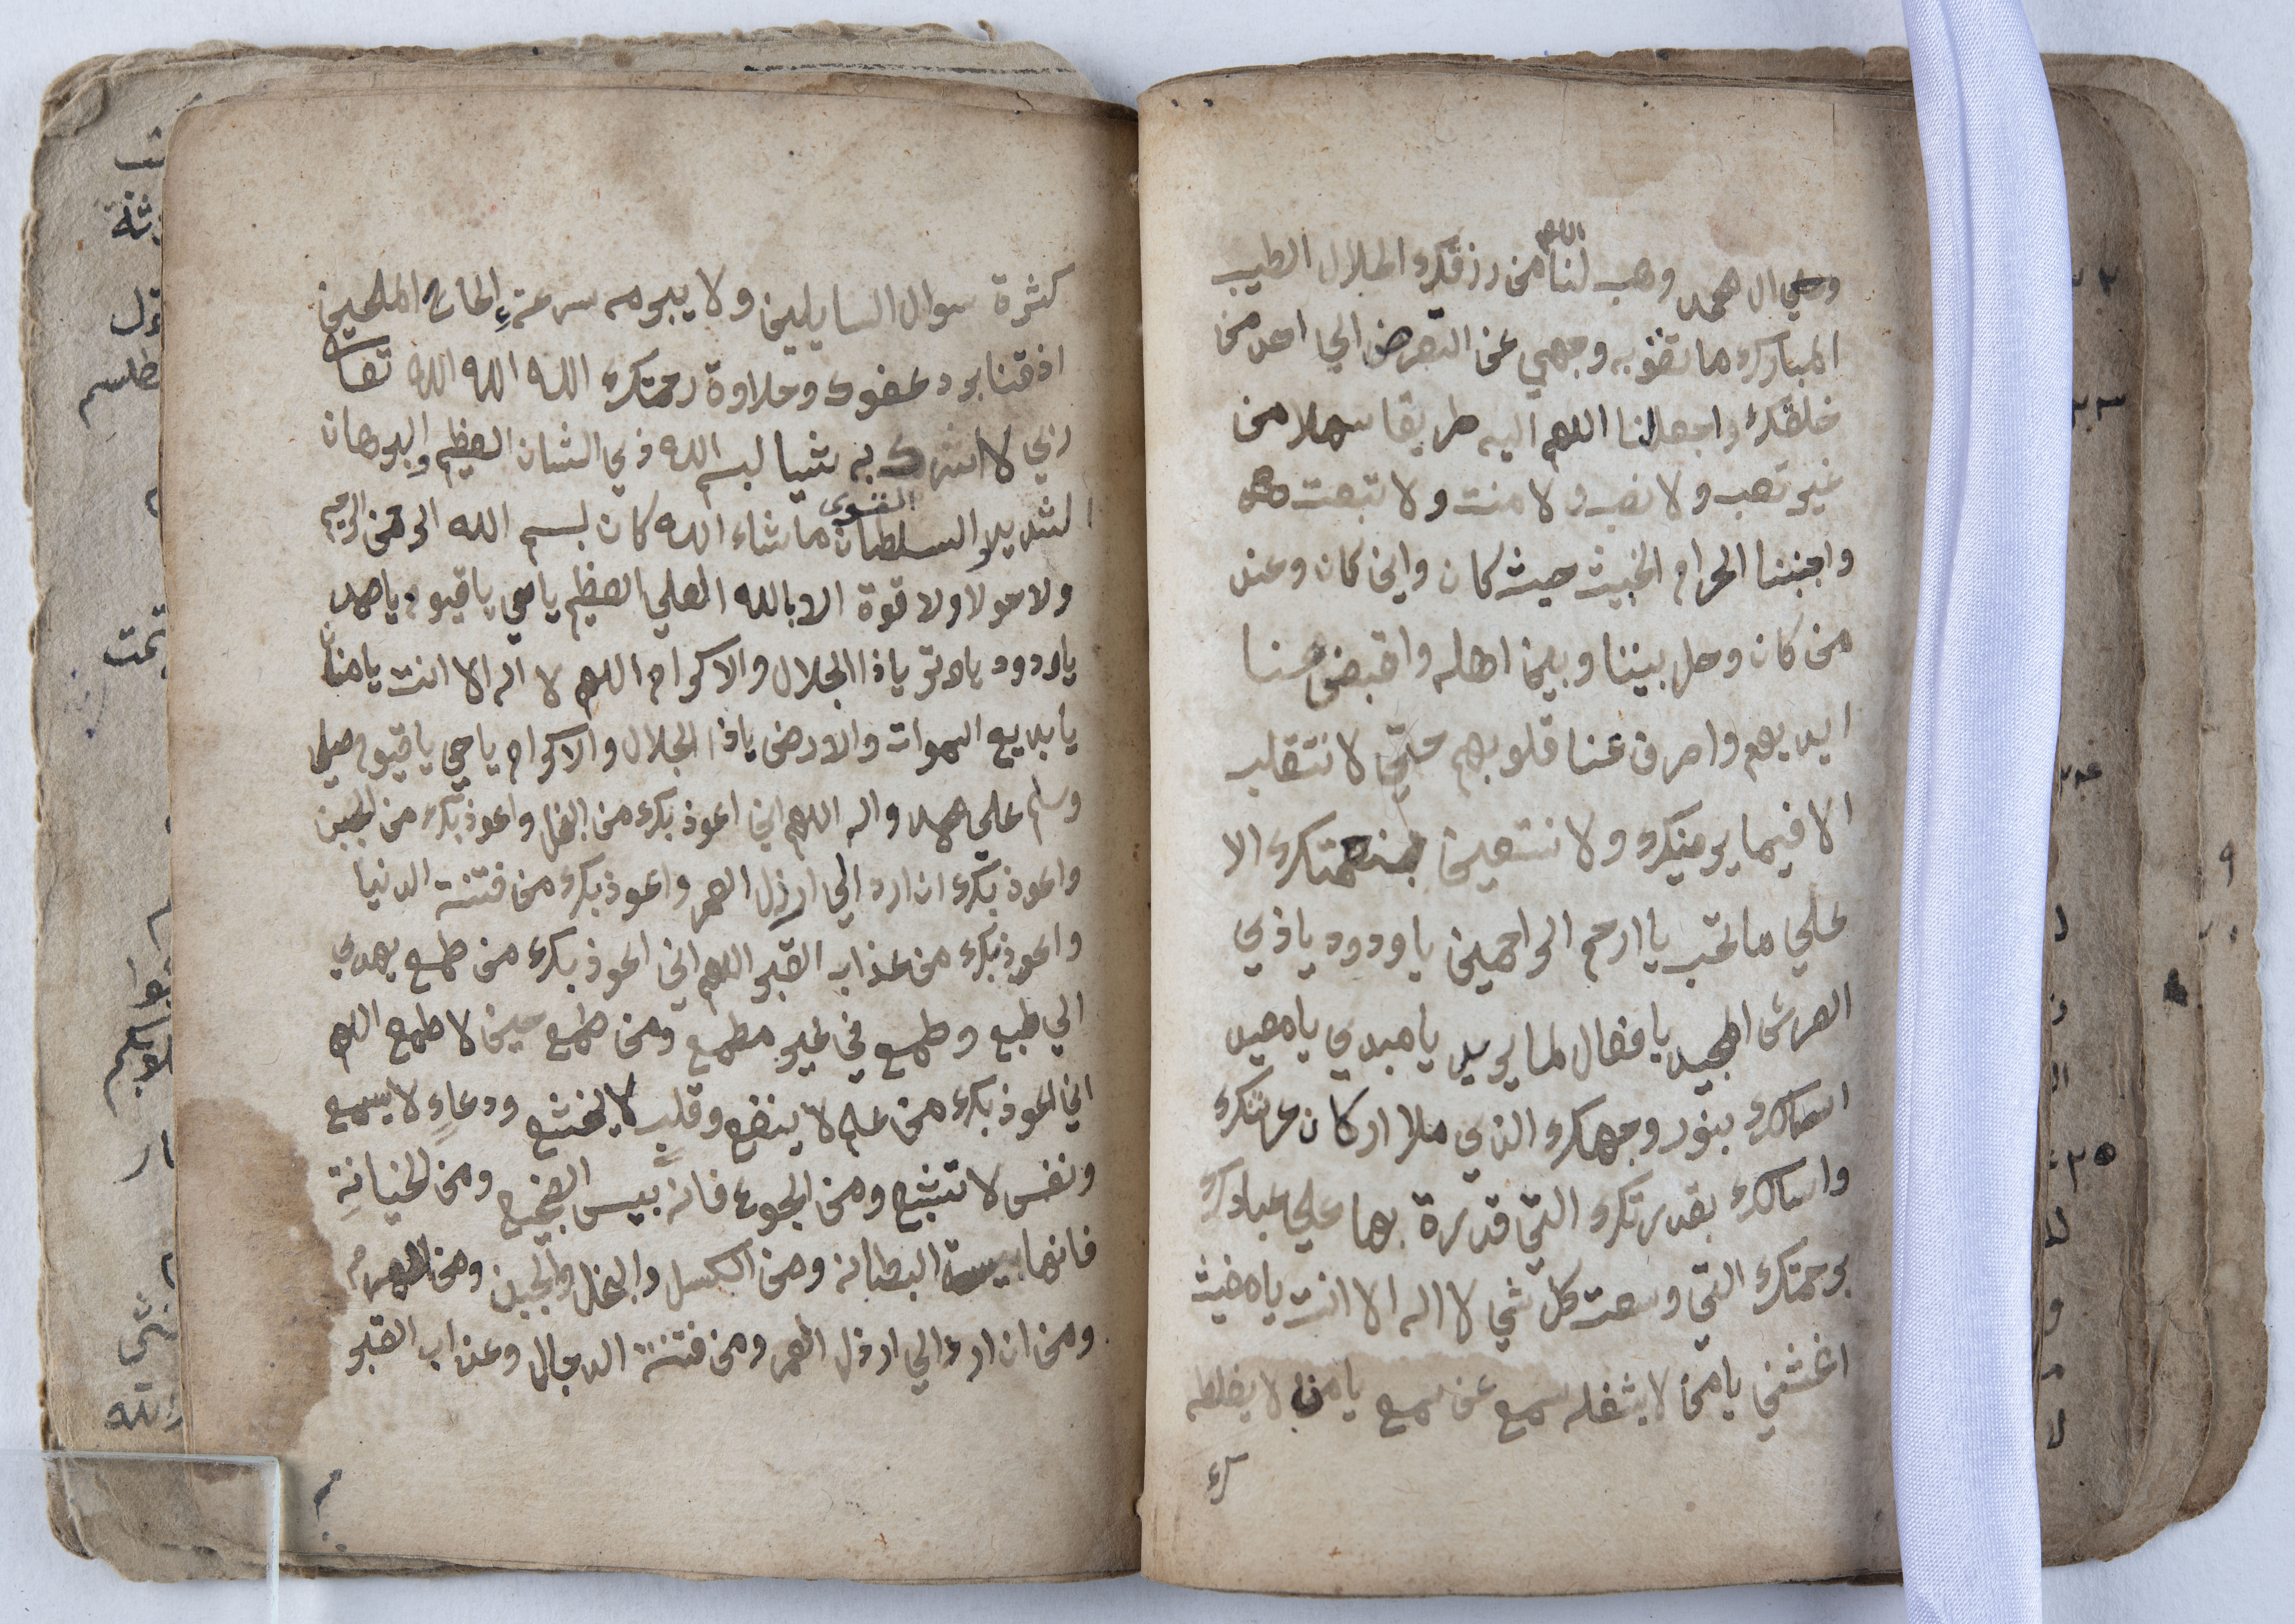 وعلي ال محمد وهب لنا اللهم من رزقك الحلال الطيب
المبارك ما تغنو به وجهي عن التعرض الي احد من
خلقك واجعل لنا اللهم اليه طريقا سهلا من
غير تعب ولا نصب ولا منت ولا تبعت
واجنبنا الحرام الخبيث حيث كان واين كان وعند
من كان وحل بيننا وبين اهله واقبض عنا
ايديهم واصرف عنا قلوبهم حتي لا نتقلب
الا فيما يرضيك ولا نستعين بنعمتك الا
علي ما تحب يا ارحم الراحمين يا ودود يا ذي
العرش المجيد يا فعال لما يريد يا مبدي يا معيد
اسالك بنور وجهك الذي ملا اركان عرشك
واسالك بقدرتك التي قدرة بها علي عبادك
برحمتك التي وسعت كل شي لا اله الا انت يا مغيث
اغثني يا من لا يشغله سمع عن سمع يا من لا يغلطه
كثرة سوال السايلين ولا يبرمه سرعةِ الحاح الملحين
اذقنا برد عفوك وحلاوة رحمتك الله الله الله
ربي لا اشرك به شيا بسم الله ذي الشان العظيم والبرهان
الشديد والسلطان القوي ما شاء الله كان بسم الله الرحمن الرحيم
ولا حولا ولا قوة الا بالله العلي العظيم يا حي يا قيوم يا صمد
يا ودود يا وتر يا ذا الجلال والاكرام اللهم لا اله الا انت يا منان
يا بديع السموات والارض يا ذا الجلال والاكرام يا حي يا قيوم صلي
وسلم علي محمد واله اللهم اني اعوذ بك من البخل واعوذ بك من الجبن
واعوذ بك ان ارد الي ارذل العمر واعوذ بك من فتنة الدنيا
واعوذ بك من عذاب القبر اللهم اني اعوذ بك من طمع يهدي
الي طبع وطمع في غير مطمع ومن طمع حين لا طمع اللهم
اني اعوذ بك من علم لا ينفع وقلب لا يخشع ودعاءٍ لا يسمع
ونفس لا تشبع ومن الجوع فانه بيس الضجيع ومن الخيانةِ
فانها بيسة البطانه ومن الكسل والبخل والجبن ومن الهرم
ومن ان ارد الي ارذل العمر ومن فتنة الدجال وعذاب القبر